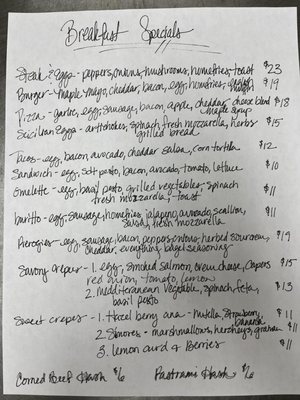 Breakfast Specials
Steak & Eggs - peppers, onions, mushrooms, homefries, toast $23
Burger - Maple mayo, cheddar, bacon, egg, homefries, english muffin $19
Pizza - garlic, egg, sausage, bacon, apple, cheddar cheese blend $18
maple syrup
Sicilian Eggs - artichokes, spinach, fresh mozzarella, herbs $15
grilled bread
Tacos - egg, bacon, avocado, cheddar salsa, corn tortilla $12
Sandwich - egg, pesto, bacon, avocado, tomato, lettuce $10
Omelette - egg, basil pesto, grilled vegetables, spinach $11
fresh mozzarella, toast
burrito - egg, sausage, homefries, jalapeno, avocado, scallion, $11
salsa, fresh mozzarella
Pierogies - egg, sausage, bacon, peppers, onions, herbed sour cream, $19
cheddar, everything bagel seasoning
Savory crepes - 1. egg, smoked salmon, cream cheese, capers $15
red onion, tomato, lemon
2. Mediterranean vegetable, spinach, feta, $13
basil pesto
Sweet crepes - 1. Hazel berry ana - Nutella, Strawberry, $11
banana
2. S'mores - marshmallows, hersheys, graham $11
3. lemon curd & Berries $11
Corned Beef Hash $16 Pastrami Hash $16